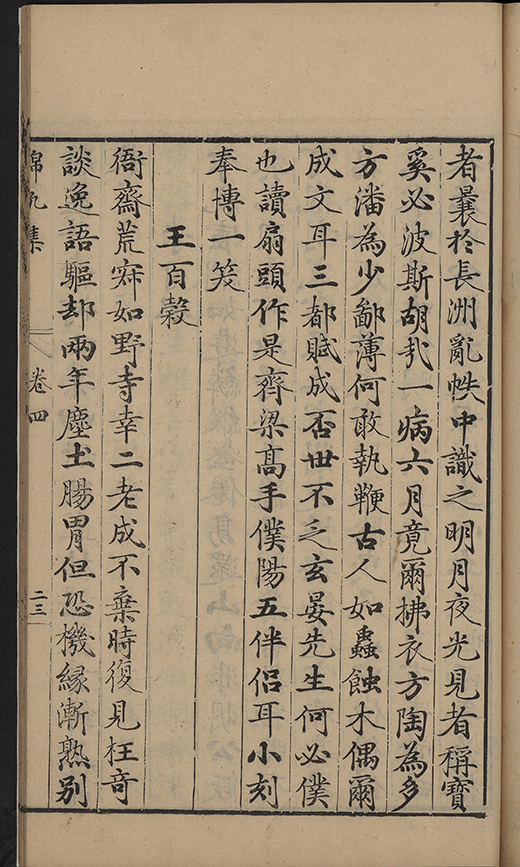 者曩於長洲亂帙中識之明月夜光見者稱寶
奚必波斯胡哉一病六月竟爾拂衣方陶為多
方潘為少鄙薄何敢執鞭古人如蟲蝕木偶爾
成文耳三都賦成否世不乏玄晏先生何必僕
也讀扇頭作是齊梁高手僕陽五伴侶耳小刻
奉博一笑
王百穀
衙齋荒寂如野寺幸二老成不棄時復見枉奇
談逸語驅却兩年塵土腸胃但恐機緣漸熟別
錦帆集
卷四
二三